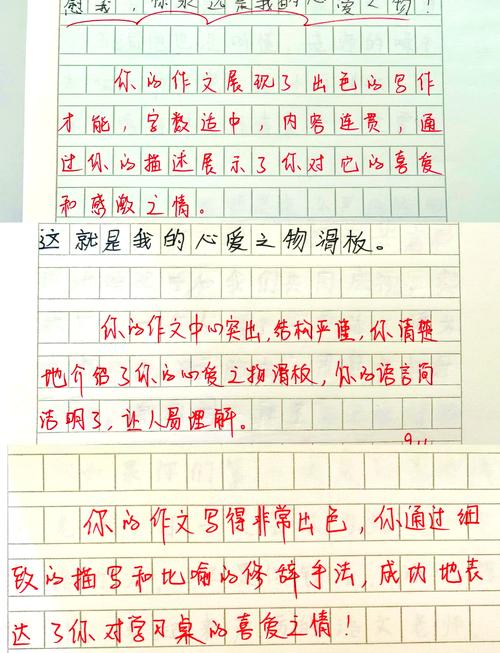 慰我，你永远是我的心爱之物！
你的作文展现了出色的写作
才能，字数适中，内容连贯，通
过你的描述展示了你对它的喜爱
和感激之情。
这就是我的心爱之物滑板。
你的作文中心突出，结构严谨，你清楚
地介绍了你的心爱之物滑板，你的语言简
洁明了，让人易理解。
你的作文写得非常出色，你通过细
致的描写和比喻的修辞手法，成功地表
达了你对学习桌的喜爱之情！